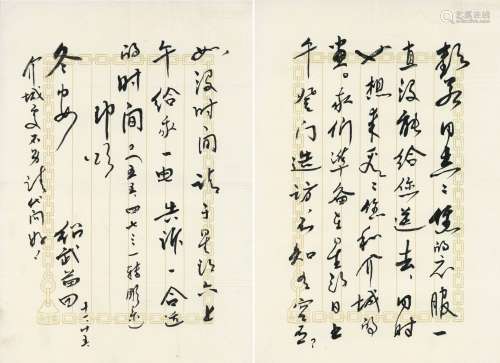 同志:您的衣服一
直没能给您送去,同时
也想来看看您和介城的
画。我们准备在星期日上
午登门造访不知有空否?
如没时间请于星期六上
午给我一电告诉一合适
的时间(五五四七三一转
即颂
冬安
介城处不另请代问好!
绍武